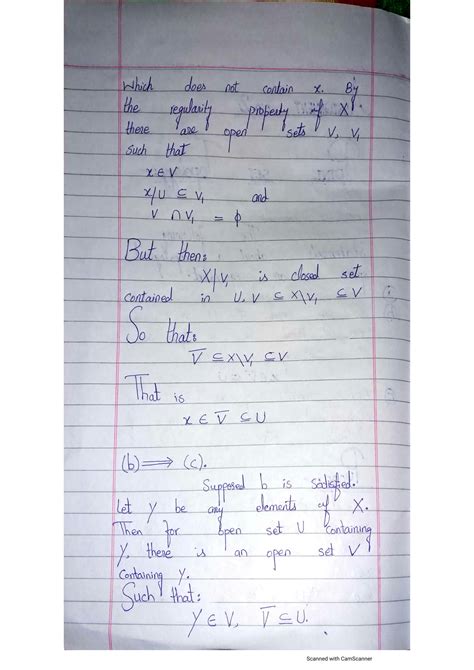 Which does not contain x. By
the regularity property of X
there are open sets V, V₁
such that
x ∈ V
X/U ⊆ V₁ and
V ∩ V₁ = ϕ
But then:
X/V₁ is closed set
contained in U. V ⊆ X\V₁ ⊆ V
So that:
V̅ ⊆ X\V₁ ⊆ V
That is
x ∈ V̅ ⊆ U
(b) ⟹ (c).
Supposed b is satisfied.
Let y be any elements of X.
Then for open set U containing
Y, there is an open set V
containing Y.
Such that:
Y ∈ V, V̅ ⊆ U.
Scanned with CamScanner